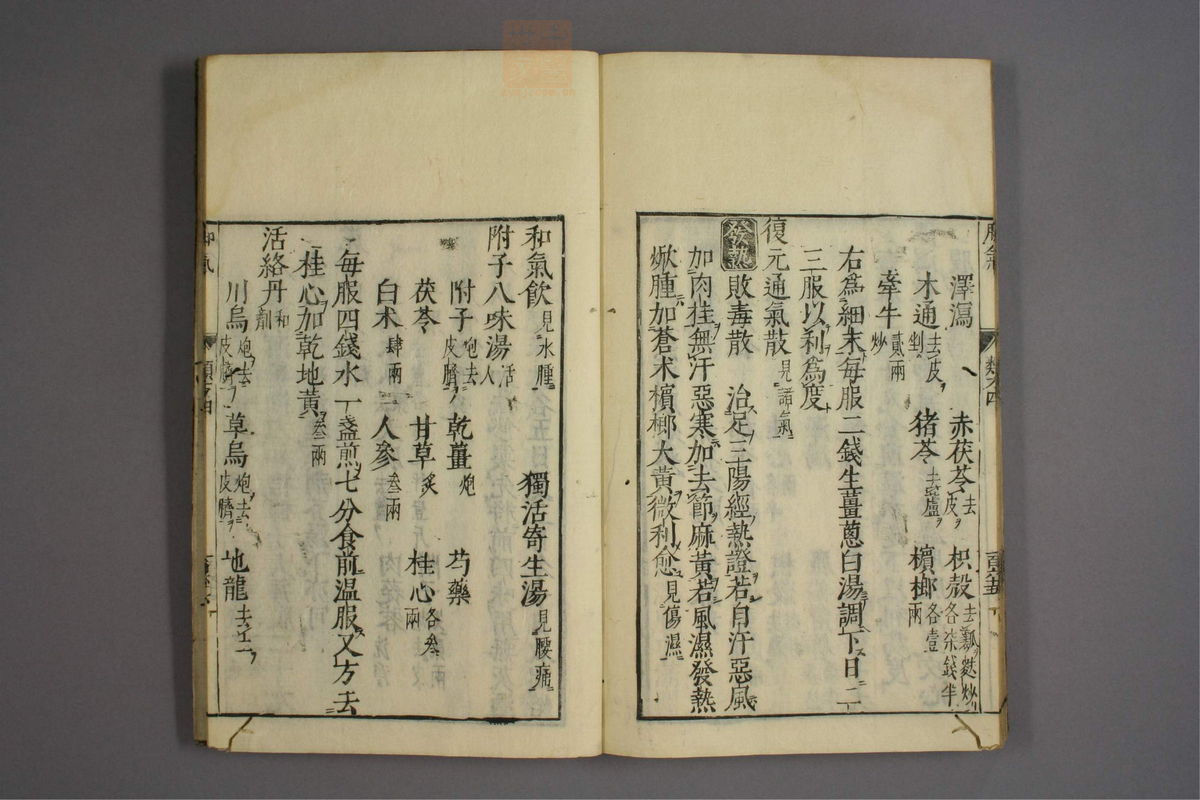 澤瀉 赤茯苓去皮 枳殼去瓤麩炒各柒錢半
木通去皮剉 猪苓去蘆 檳榔各壹兩
牽牛貳兩炒
右為細末每服二錢生薑蔥白湯調下日二
三服以利為度
復元通氣散見諸氣
發熱 敗毒散 治足三陽經熱證若自汗惡風
加肉桂無汗惡寒加去節麻黃若風濕發熱
焮腫加蒼朮檳榔大黃微利愈見傷濕
和氣飲見水腫 獨活寄生湯見腰痛
附子八味湯活人
附子炮去皮臍 乾薑炮 芍藥
茯苓 甘草炙 桂心各叄兩
白朮肆兩 人參叄兩
每服四錢水一盞煎七分食前溫服又方去
桂心加乾地黃叄兩
活絡丹和劑
川烏炮去皮臍 草烏炮去皮臍 地龍去土